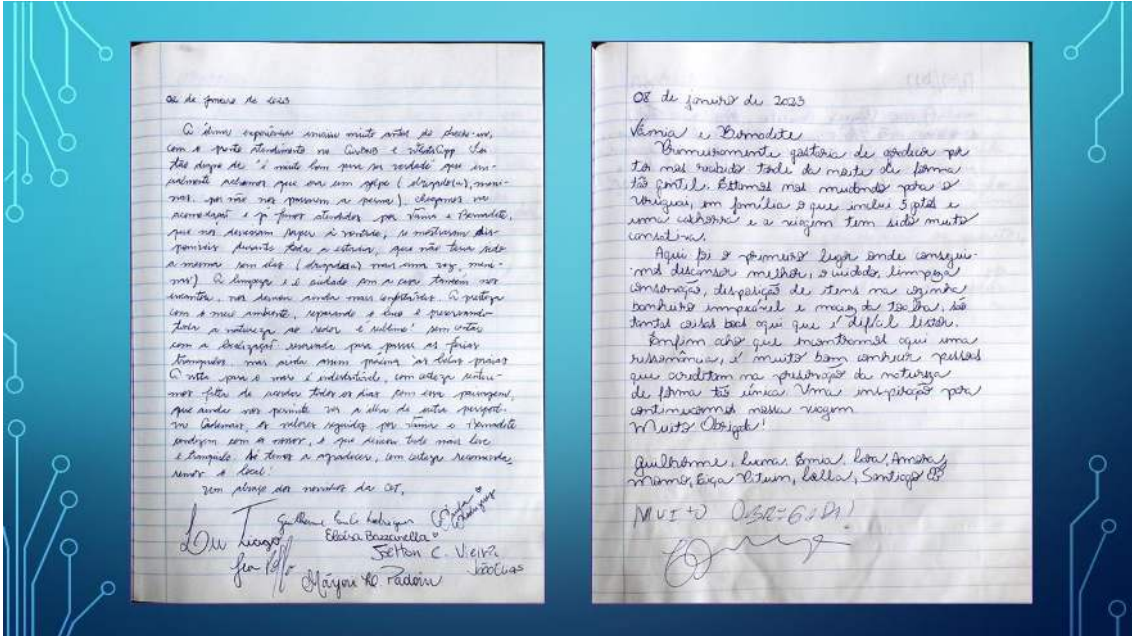 02 de janeiro de 2023
A ótima experiência iniciou muito antes do check-in,
com o pronto atendimento no e WhatsApp. Foi
tão daquele "é muito bom para ser verdade" que ini-
cialmente achamos que era um golpe ( ), meni-
nas, por não nos passarem a perna), chegamos na
acomodação e já fomos atendidos por Vânia e Bernadete,
que nos deixaram super à vontade, se mostraram dis-
poníveis durante toda a estadia, que não teria sido
a mesma sem elas ( mais uma vez, meni-
nas) A limpeza e o cuidado com a casa também nos
encantou, nos deixou ainda mais confortáveis. A
com o meio ambiente, separando o lixo e preservando
toda a natureza ao redor é sublime! Sem contar
com a localização reservada para passar as férias
tranquilos mas ainda assim próxima às belas praias
A vista para o mar é indescritível, com certeza sentire-
mos falta de acordar todos os dias com essa paisagem,
que ainda nos permite ver a ilha de outra perspecti-
va os valores seguidos por Vânia e Bernadete
condizem com os nossos, o que deixou tudo mais leve
e tranquilo. Só temos a agradecer, com certeza recomenda-
remos o local!
Um abraço dos
Lu Tiago
Guilherme
Eloisa Bazzanella
Joelton C. Vieira
João Elias
Máyori Padoin
08 de janeiro de 2023
Vânia e Bernadete
Primeiramente gostaria de agradecer por
ter nos recebido tarde da noite de forma
tão gentil. Estamos nos mudando para o
Uruguai, em família o que inclui 5 gatos e
uma cachorra e a viagem tem sido muito
cansativa.
Aqui foi o primeiro lugar onde consegui-
mos descansar melhor, o cuidado, limpeza
conservação, disposição de itens na cozinha
banheiro impecável e maciez da toalha, são
tantas coisas boas aqui que é difícil listar.
Enfim acho que encontramos aqui uma
ressonância, é muito bom conhecer pessoas
que acreditam na preservação da natureza
de forma tão única. Uma inspiração para
continuarmos nossa viagem
Muito Obrigada!
Guilherme, Luana, Lola, Amora,
Momo, Pitum, Lolla, Santiago
MUITO OBRIGADA!